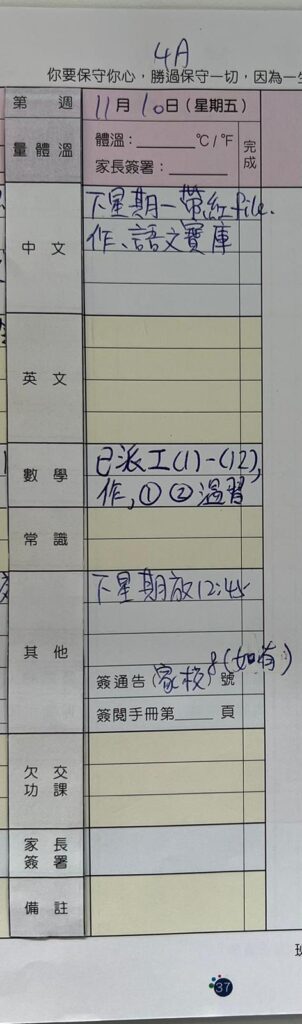 4A
你要保守你心，勝過保守一切，因為一生
第 週 11月10日（星期五）
量體溫 體溫：______℃/℉ 完成
家長簽署：______
中文 下星期一帶紅file.
作、語文寶庫
英文
數學 已派工(1)-(12),
作,①②溫習
常識
其他 下星期放12:45
簽通告（家校）8號（如有）
簽閱手冊第____頁
欠交功課
家長簽署
備註
37